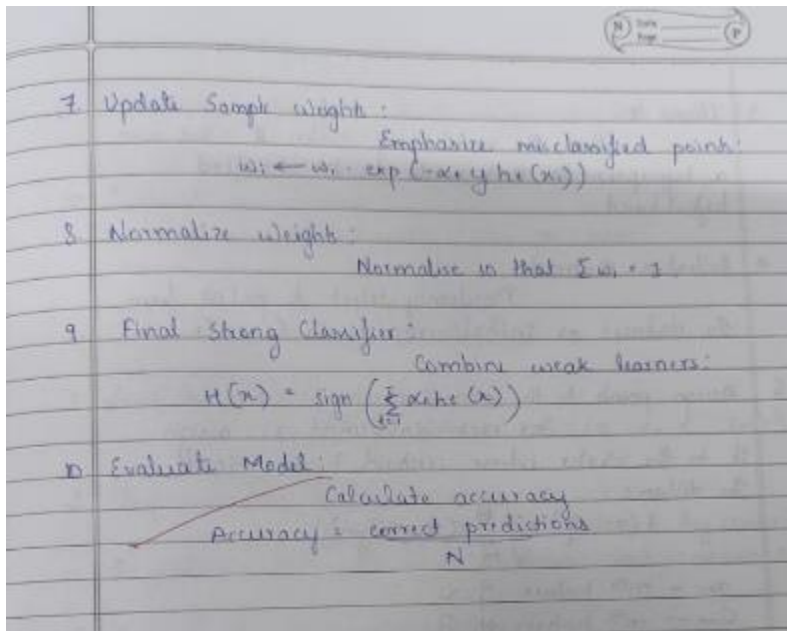 N Date P
Page
7 Update Sample weights :
Emphasize misclassified points:
wi ← wi · exp (-αt yi ht(xi))
8 Normalize weights :
Normalise so that Σ wi = 1
9 Final Strong Classifier :
Combine weak learners:
H(x) = sign (Σ t=1 αt ht (x))
10 Evaluate Model :
Calculate accuracy
Accuracy = correct predictions
N